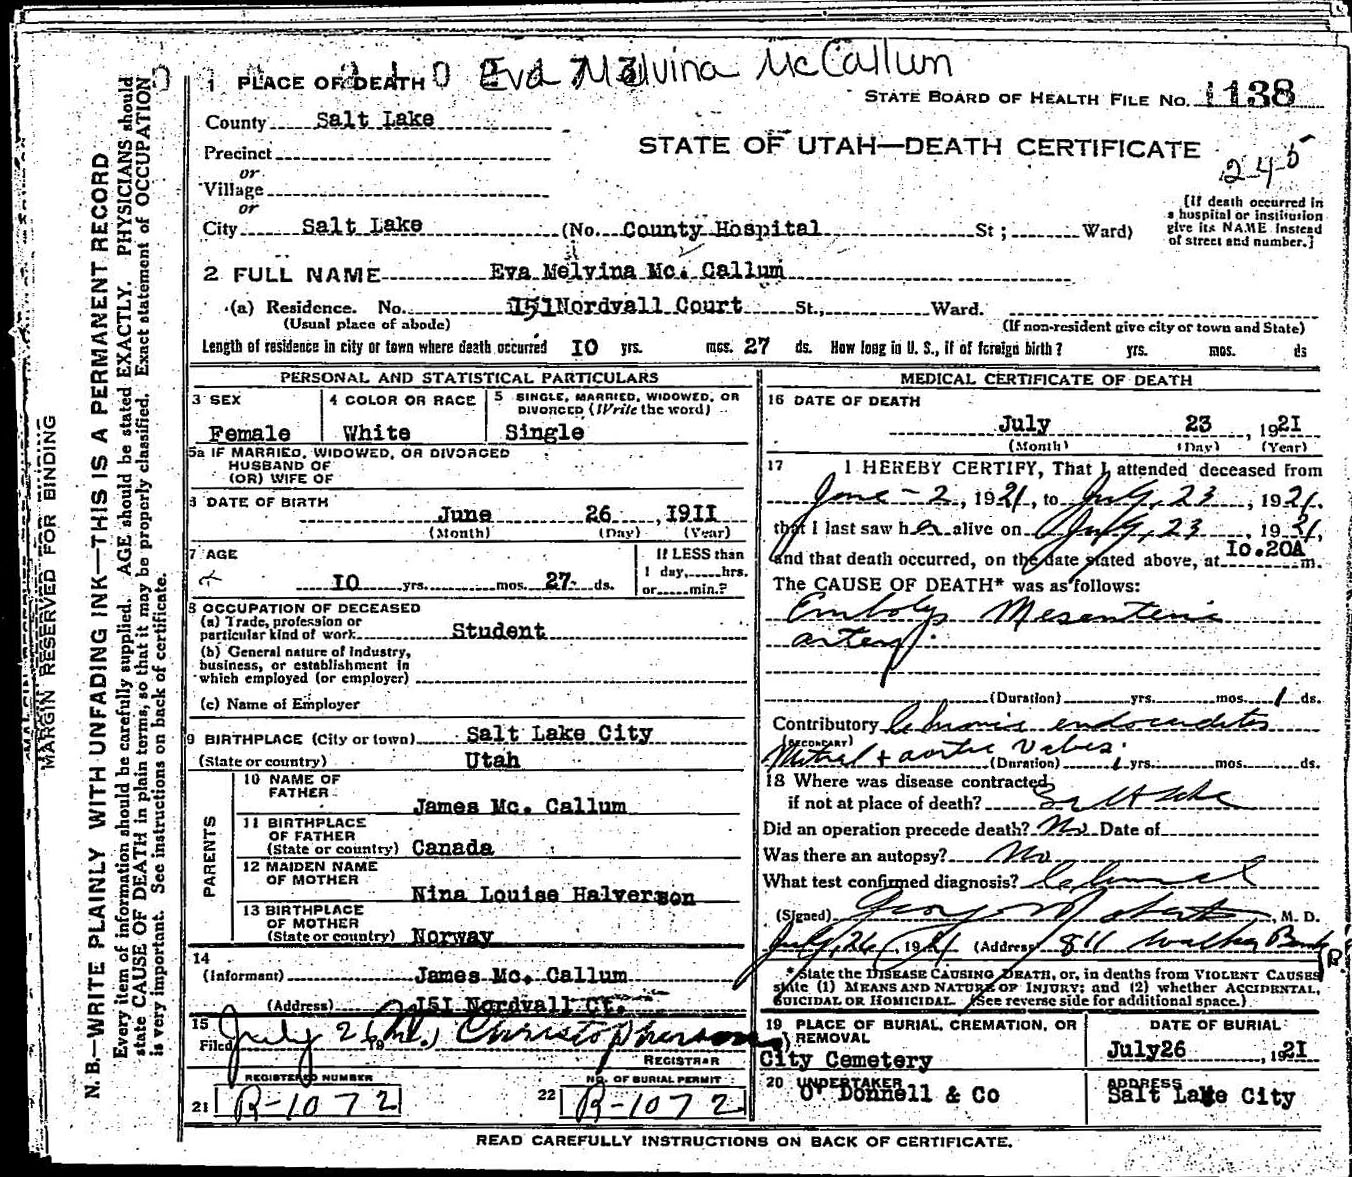 Eva Melvina McCallum
1 PLACE OF DEATH
STATE BOARD OF HEALTH FILE No. 1138
County Salt Lake
STATE OF UTAH—DEATH CERTIFICATE
245
Precinct
or
Village
or
City Salt Lake (No. County Hospital St ; Ward)
[If death occurred in
a hospital or institution
give its NAME instead
of street and number.]
2 FULL NAME Eva Melvina Mc. Callum
(a) Residence. No. 151 Nordvall Court St., Ward.
(Usual place of abode)
(If non-resident give city or town and State)
Length of residence in city or town where death occurred 10 yrs. mos. 27 ds. How long in U. S., if of foreign birth? yrs. mos. ds
PERSONAL AND STATISTICAL PARTICULARS
3 SEX
Female
4 COLOR OR RACE
White
5 SINGLE, MARRIED, WIDOWED, OR
DIVORCED (Write the word)
Single
5a IF MARRIED, WIDOWED, OR DIVORCED
HUSBAND OF
(OR) WIFE OF
6 DATE OF BIRTH
June 26, 1911
(Month) (Day) (Year)
7 AGE
10 yrs. mos. 27 ds.
If LESS than
1 day, hrs.
or min.?
8 OCCUPATION OF DECEASED
(a) Trade, profession or
particular kind of work Student
(b) General nature of Industry,
business, or establishment in
which employed (or employer)
(c) Name of Employer
9 BIRTHPLACE (City or town) Salt Lake City
(State or country) Utah
PARENTS
10 NAME OF
FATHER
James Mc. Callum
11 BIRTHPLACE
OF FATHER
(State or country) Canada
12 MAIDEN NAME
OF MOTHER
Nina Louise Halverson
13 BIRTHPLACE
OF MOTHER
(State or country) Norway
14
(Informant) James Mc. Callum
(Address) 151 Nordvall Ct.
15
Filed July 26 Christopherson
REGISTRAR
REGISTERED NUMBER
21 R-1072
NO. OF BURIAL PERMIT
22 R-1072
MEDICAL CERTIFICATE OF DEATH
16 DATE OF DEATH
July 23, 1921
(Month) (Day) (Year)
17 I HEREBY CERTIFY, That I attended deceased from
June - 2, 1921, to July, 23, 1921.
that I last saw her alive on July, 23 1921,
and that death occurred, on the date stated above, at 10.20A m.
The CAUSE OF DEATH* was as follows:
Embolys Mesenteric
artery.
(Duration) yrs. mos. 1 ds.
Contributory Chronic endocardites
(SECONDARY)
Mitral + aortic valves.
(Duration) 1 yrs. mos. ds.
18 Where was disease contracted
if not at place of death? Salt Lake
Did an operation precede death? No Date of
Was there an autopsy? No
What test confirmed diagnosis? Clinical
(Signed) Geo Roberts, M. D.
July, 26, 1921 (Address) 811 Walker Bank
*State the DISEASE CAUSING DEATH, or, in deaths from VIOLENT CAUSES
state (1) MEANS AND NATURE OF INJURY; and (2) whether ACCIDENTAL,
SUICIDAL OR HOMICIDAL. (See reverse side for additional space.)
19 PLACE OF BURIAL, CREMATION, OR
REMOVAL
City Cemetery
DATE OF BURIAL
July 26, 1921
20 UNDERTAKER
O' Donnell & Co
ADDRESS
Salt Lake City
READ CAREFULLY INSTRUCTIONS ON BACK OF CERTIFICATE.
MARGIN RESERVED FOR BINDING
N. B.—WRITE PLAINLY WITH UNFADING INK—THIS IS A PERMANENT RECORD
Every item of information should be carefully supplied. AGE should be stated EXACTLY. PHYSICIANS should
state CAUSE OF DEATH in plain terms, so that it may be properly classified. Exact statement of OCCUPATION
is very important. See instructions on back of certificate.